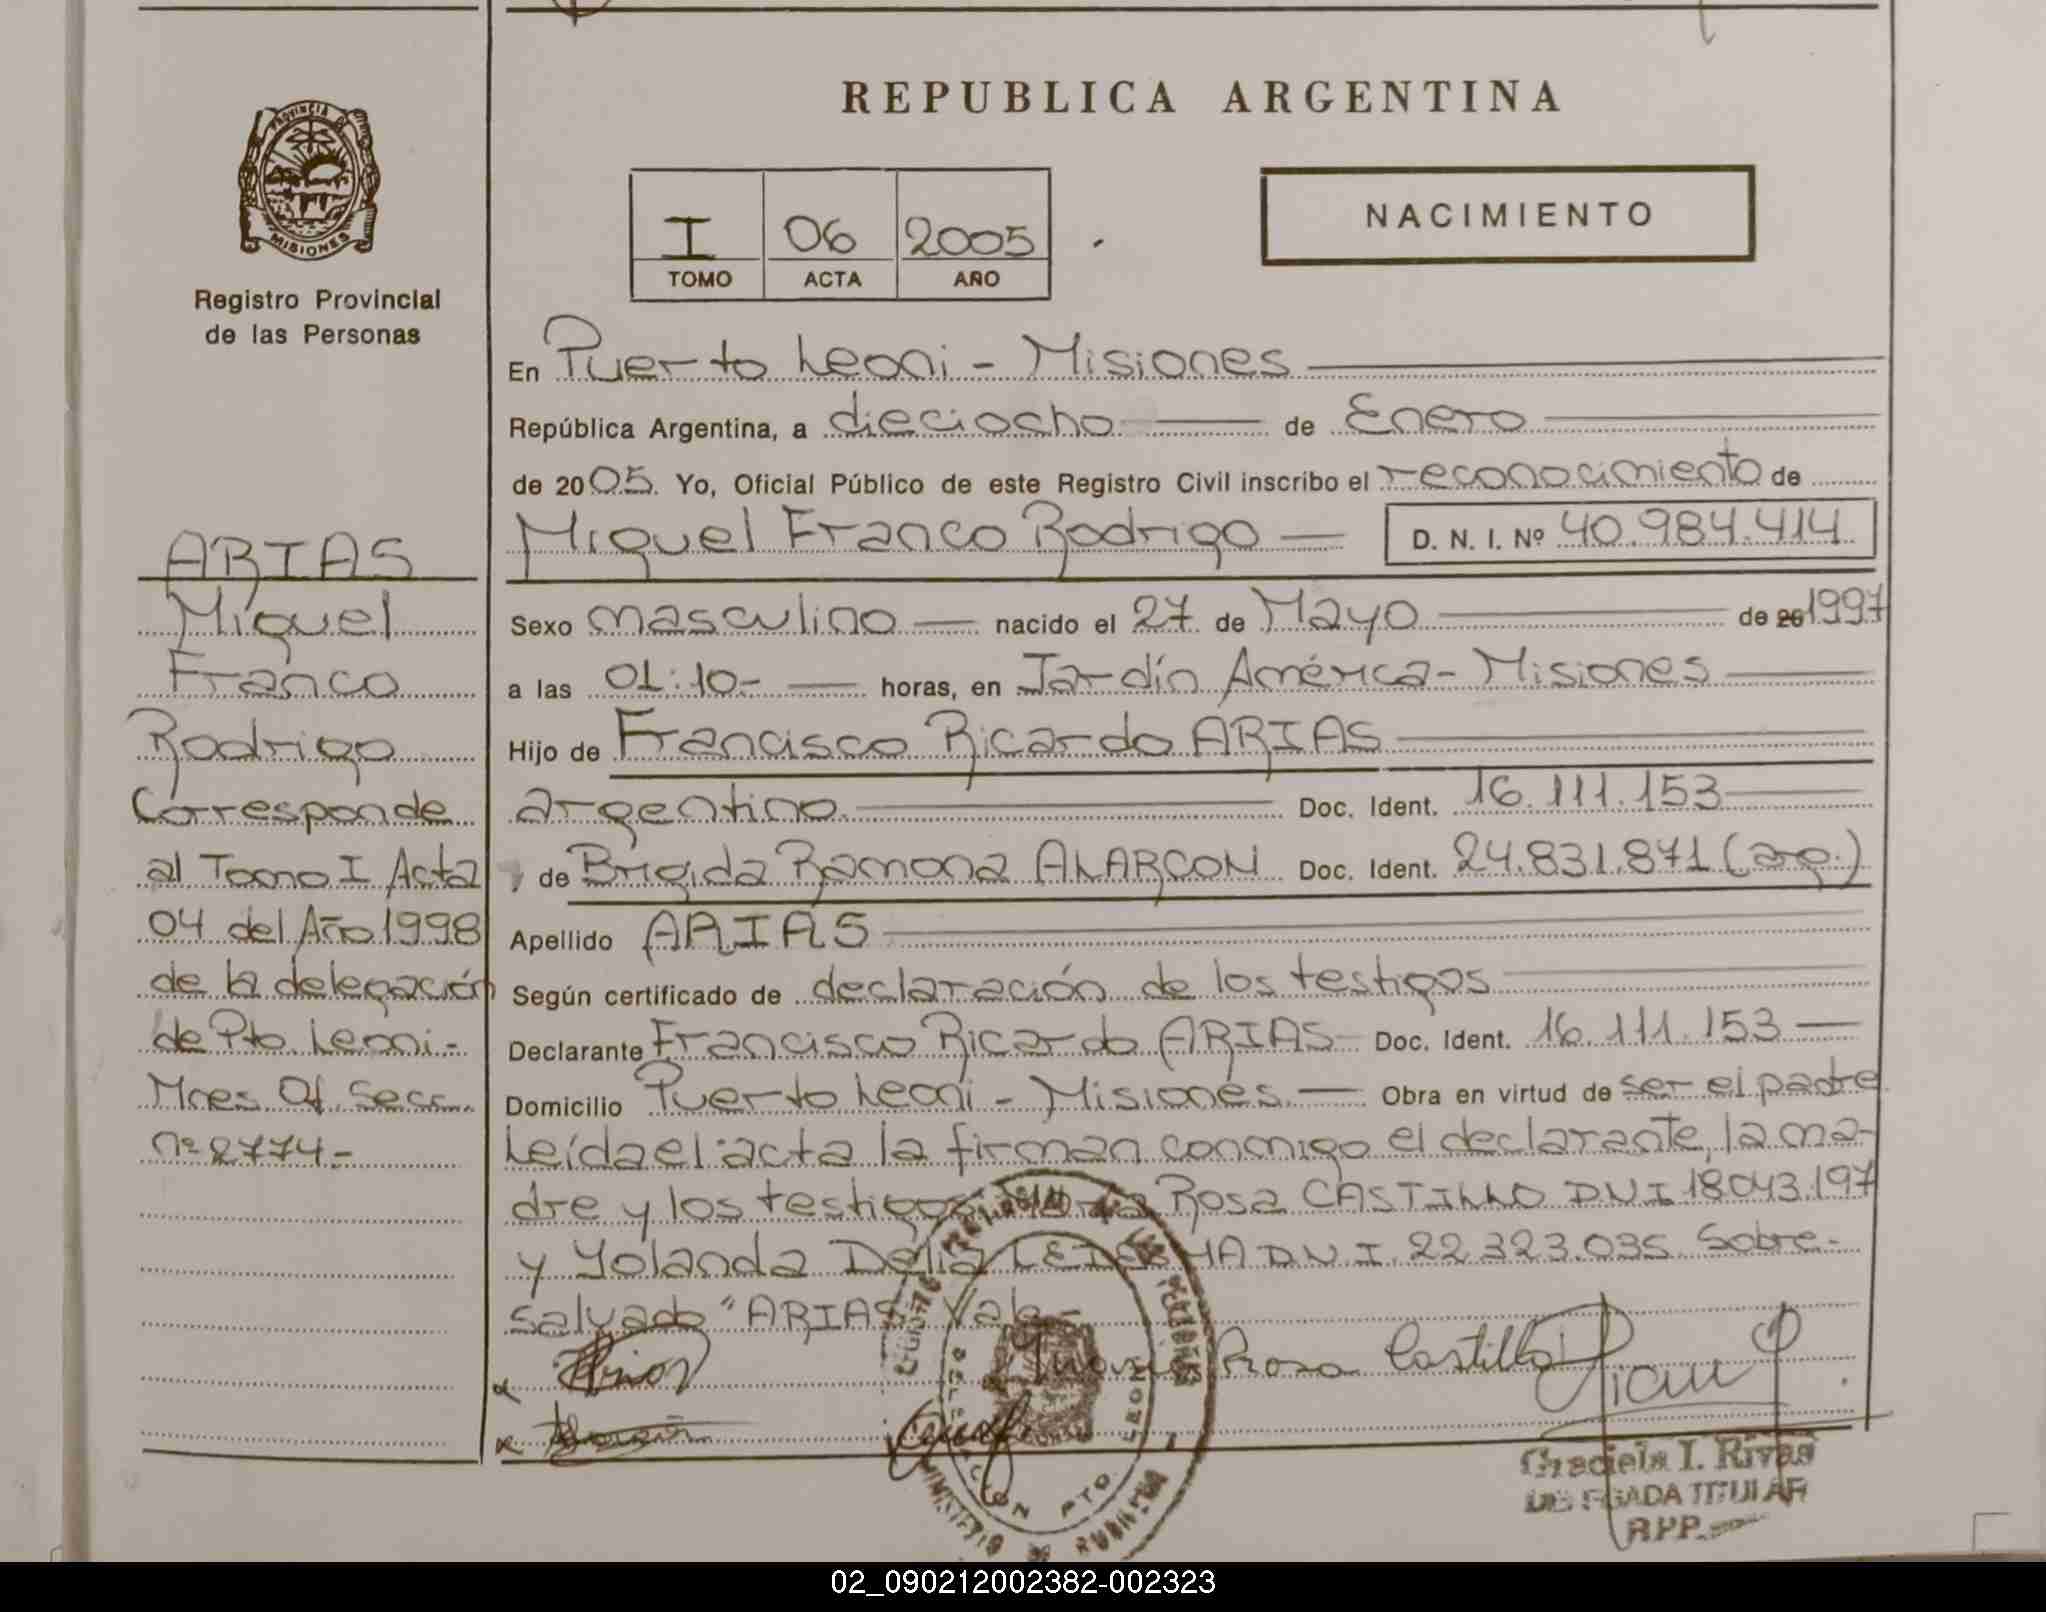 REPUBLICA ARGENTINA
PROVINCIA DE
MISIONES
Registro Provincial
de las Personas
I 06 2005
TOMO ACTA AÑO
NACIMIENTO
ARIAS
Miguel
Franco
Rodrigo
Corresponde
al Tomo I Acta
04 del Año 1998
de la delegación
de Pto. Leoni-
Mnes Of. Secc.
nº 2774.-
En Puerto Leoni - Misiones
República Argentina, a dieciocho de Enero
de 2005. Yo, Oficial Público de este Registro Civil inscribo el reconocimiento de
Miguel Franco Rodrigo D. N. I. Nº 40.984.414
Sexo masculino nacido el 27 de Mayo de 20 1997
a las 01:10- horas, en Jardín América - Misiones
Hijo de Francisco Ricardo ARIAS
argentino. Doc. Ident. 16.111.153
y de Brigida Ramona ALARCON Doc. Ident. 24.831.871 (arg.)
Apellido ARIAS
Según certificado de declaración de los testigos
Declarante Francisco Ricardo ARIAS Doc. Ident. 16.111.153
Domicilio Puerto Leoni - Misiones. Obra en virtud de ser el padre
Leída el acta la firman conmigo el declarante, la ma-
dre y los testigos Rosa CASTILLO D.N.I 18043.197
y Yolanda Delia D.N.I. 22.323.035 Sobre-
salvado "ARIAS" Vale-
Rosa Castillo
MINISTERIO DE
PTO. LEONI
Graciela I. Rivas
DELEGADA TITULAR
R.P.P.
02_090212002382-002323